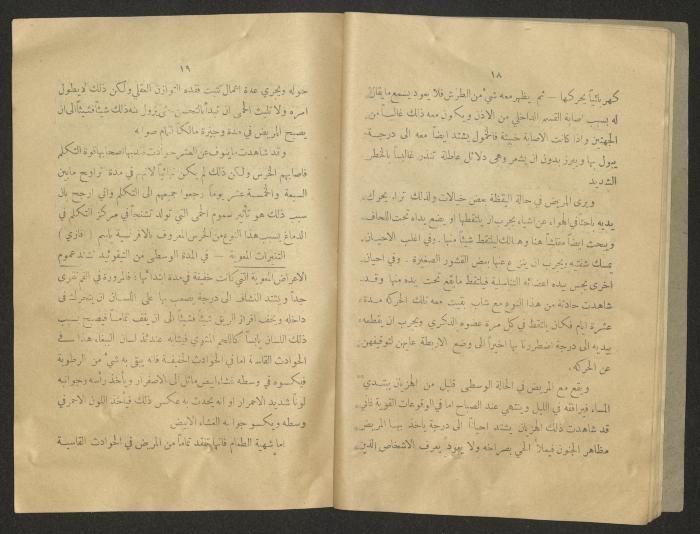 ١٨
كهربائياً يحركها — ثم يظهر معه شيء من الطرش فلا يعود يسمع ما يقال
له بسبب اصابة القسم الداخلي من الاذن ويكون معه ذلك غالباً من
الجهتين واذا كانت الاصابة خبيثة فالخمول يشتد ايضاً معه الى درجة
يبول بها ويبرز بدون ان يشعر وهي دلائل عاطلة تنذر غالباً بالخطر
الشديد
ويرى المريض في حالة اليقظة بعض خيالات ولذلك تراه يحرك
يديه باحثاً في الهواء عن اشياء يجرب ان يلتقطها او يضع يداه تحت اللحاف
ويبحث ايضاً مفتشاً هنا وهنالك ليلتقط شيئاً منها. وفي اغلب الاحيان
يمسك شفتيه ويجرب ان ينزع عنها بعض القشور الصغيرة. وفي احيان
اخرى يجس بيده اعضائه التناسلية فيلتقط ما يقع تحت يده منها وقد
شاهدت حادثة من هذا النوع مع شاب بقيت معه تلك الحركة مدة
عشرة ايام فكان يلتقط في كل مرة عضوه الذكري ويجرب ان يقطعه
بيديه الى درجة اضطررنا بها اخيراً الى وضع الاربطة عليهن لتوقيفهن
عن الحركة.
ويقع مع المريض في الحالة الوسطى قليل من الهزيان يبتدي
المساء فيرافقه في الليل وينتهي عند الصباح اما في الوقوعات القوية فاني
قد شاهدت ذلك الهزيان يشتد احياناً الى درجة ياخذ بها المريض
مظاهر الجنون فيملأ الحي بصراخه ولا يعود يعرف الاشخاص الذين
١٩
حوله ويجري عدة اعمال تثبت فقده التوازن العقلي ولكن ذلك لا يطول
امره ولا تلبث الحمى ان تبدأ بالتحسن حتى يزول منه ذلك شيئاً فشيئاً الى ان
يصبح المريض في مدة وجيزة مالكاً اتمام صوابه
وقد شاهدت ما ينوف عن العشر حوادث فقد بها اصحابها قوة التكلم
فاصابهم الخرس ولكن ذلك لم يكن نهائياً لانهم في مدة تراوح ما بين
السبعة والخمسة عشر يوماً رجعوا جميعهم الى التكلم واني ارجح بان
سبب ذلك هو تأثير سموم الحمى التي تولد تشنجاً في مركز التكلم في
الدماغ يسبب هذا النوع من الخرس المعروف بالافرنسية باسم ( افازي )
التغيرات المعوية — في المدة الوسطى من التيفوئيد تشتد عموم
الاعراض المعوية التي كانت خفيفة في مدة ابتدائها؛ فالمرورة في الفم تقوى
جداً ويشتد النشاف الى درجة يصعب بها على اللسان ان يتحرك في
داخله ويخف افراز الريق شيئاً فشيئاً الى ان يقف تماماً فيصبح بسبب
ذلك اللسان يابساً كاللحم المشوي فيشابه عندئذ لسان الببغاء هذا في
الحوادث القاسة اما في الحوادث الخفيفة فانه يبقى به شيء من الرطوبة
فيكسوه في وسطه غشاء ابيض مائل الى الاصفرار ويأخذ رأسه وجوانبه
لوناً شديد الاحمرار او انه يحدث به عكس ذلك فيأخذ اللون الاحمر في
وسطه ويكسو جوانبه الغشاء الابيض
اما شهية الطعام فانها تفقد تماماً من المريض في الحوادث القاسية